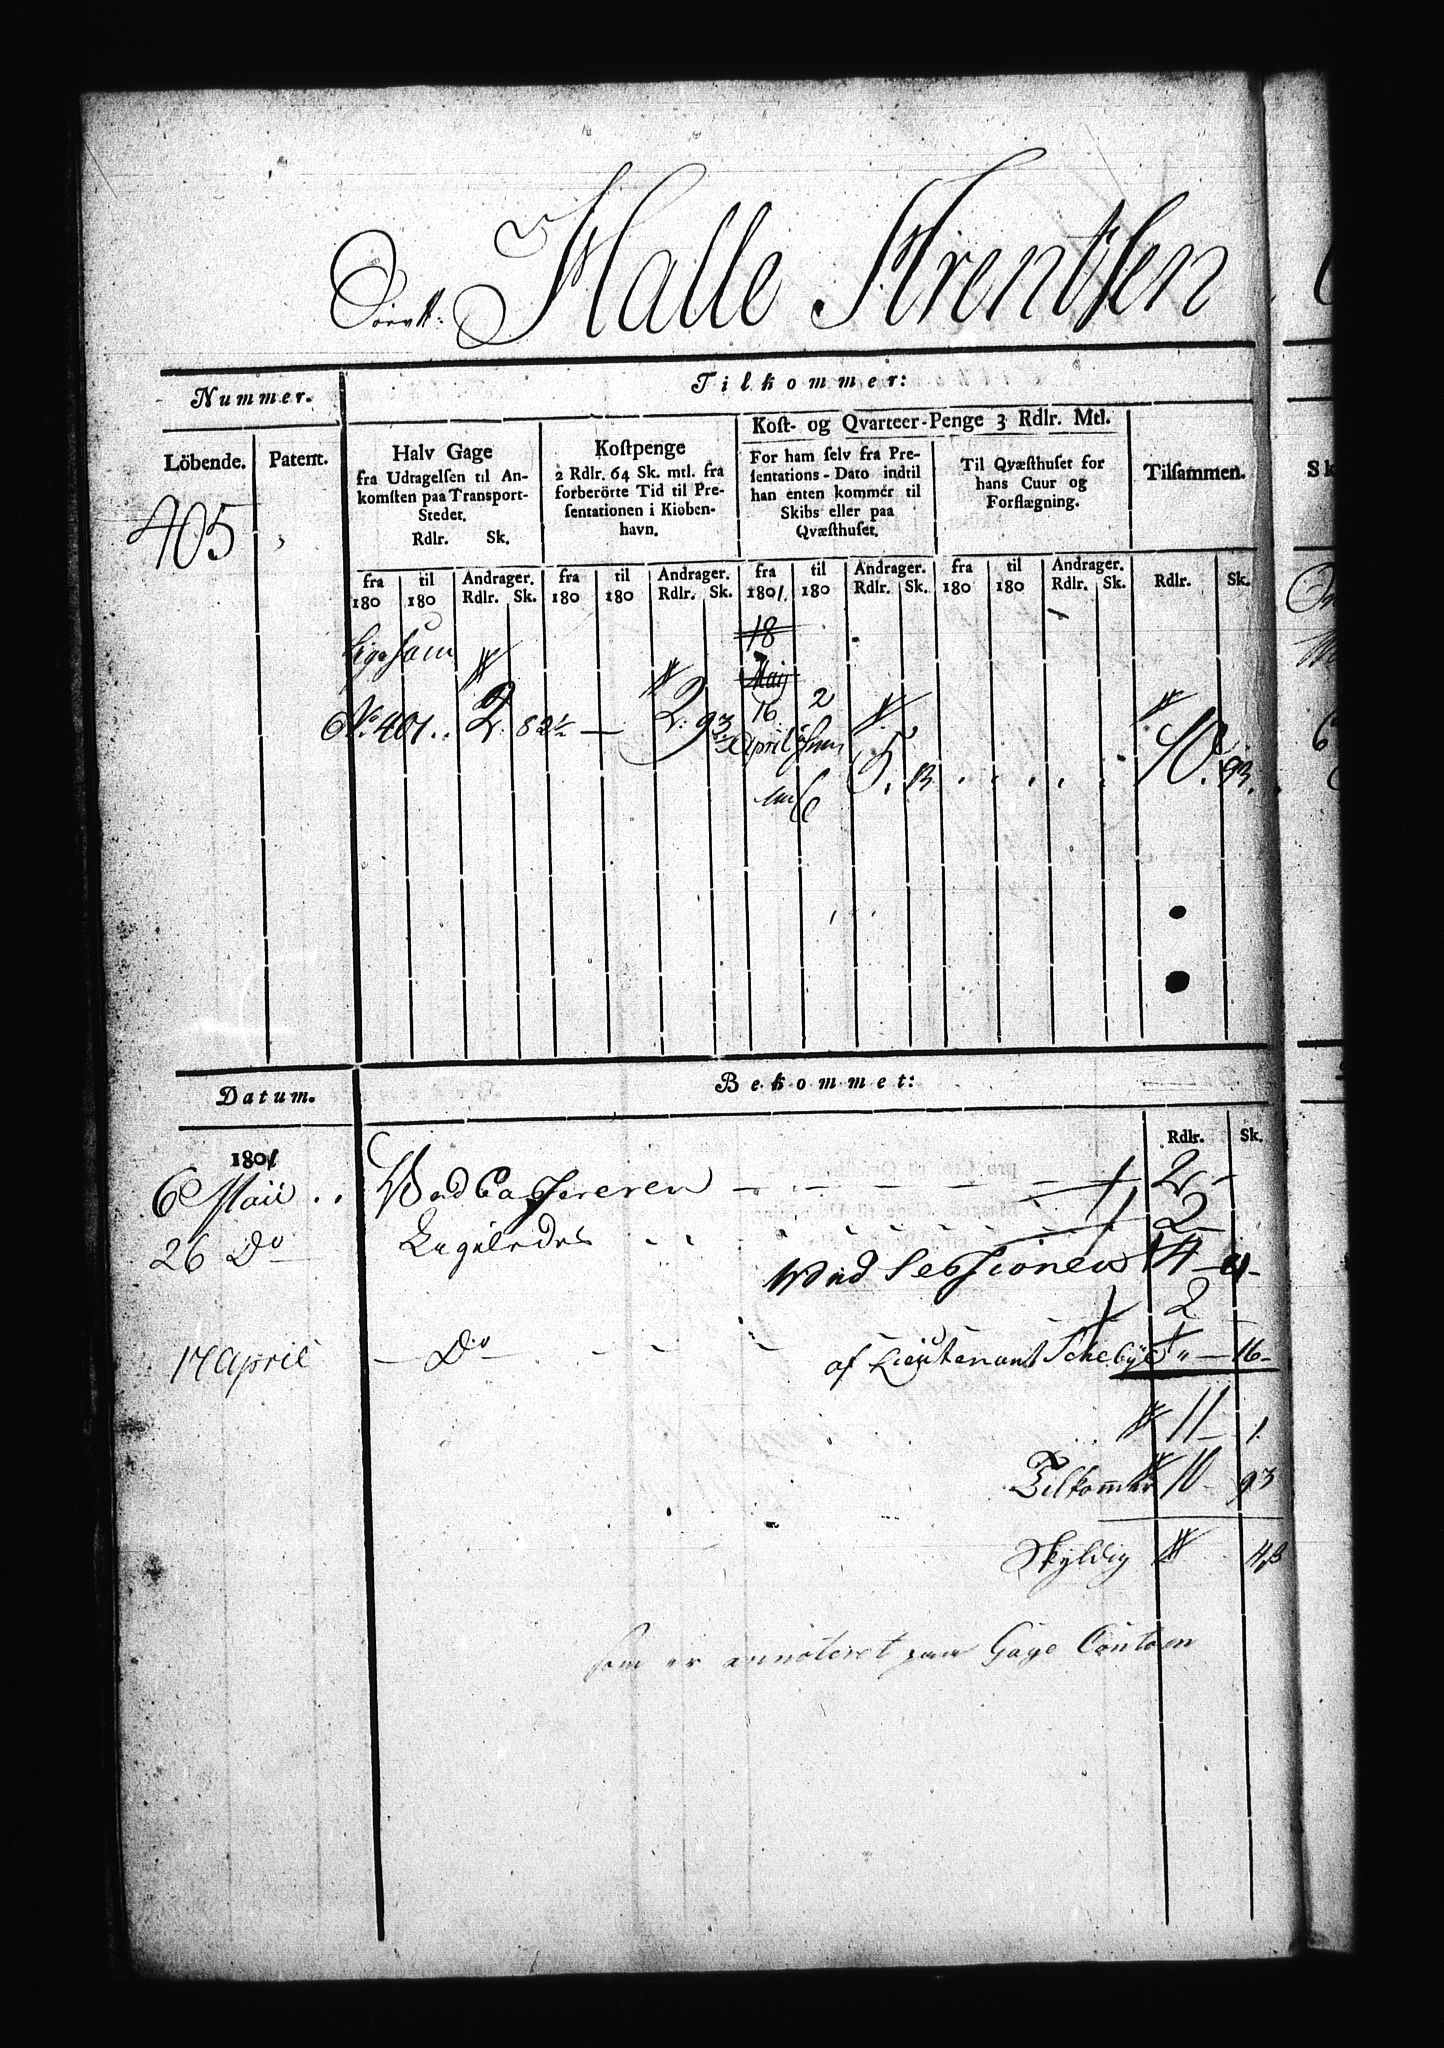 Halle Arentsen
Nummer.
Tilkommer:
Löbende.
Patent.
Halv Gage
fra Udtagelsen til An-
komsten paa Transport-
Stedet.
Rdlr. Sk.
Kostpenge
2 Rdlr. 64 Sk. mtl. fra
forberörte Tid til Pre-
sentationen i Kiöben-
havn.
Kost- og Qvarteer-Penge 3 Rdlr. Mtl.
For ham selv fra Pre-
sentations-Dato indtil
han enten kommer til
Skibs eller paa
Qvæsthuset.
Til Qvæsthuset for
hans Cuur og
Forflægning.
Tilsammen.
405
fra 180 til 180 Andrager. Rdlr. Sk.
fra 180 til 180 Andrager. Rdlr. Sk.
fra 1801. til 180 Andrager. Rdlr. Sk.
fra 180 til 180 Andrager. Rdlr. Sk.
Rdlr. Sk.
Ligesom
18
Maij
No. 401 .. 2. 82½ — 2. 93
16 April 2
5. 13 . . . . 10. 93.
Datum.
Bekommet:
Rdlr. Sk.
1801
6 Maii .. Ved Cassereren — — — 2 -
26 Do Ligeledes . . . . 2 -
Ved Sessionen 4 -
2
17 April — Do . . . af Lieutenant Schebye " — 16 -
11 - 1.
Tilkommer 10 - 93
Skyldig 4
som er annoteret paa Gage Contoen